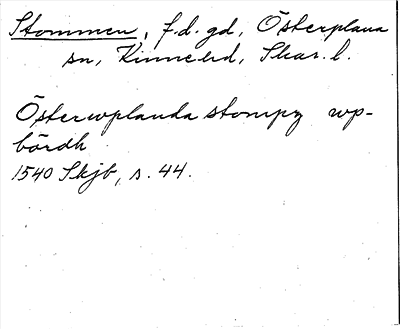 Stommen, f.d. gd, Österplana
sn, Kinne hd, Skar. l.
Österwplanda stompn wp-
bördh
1540 Skjb, s. 44.